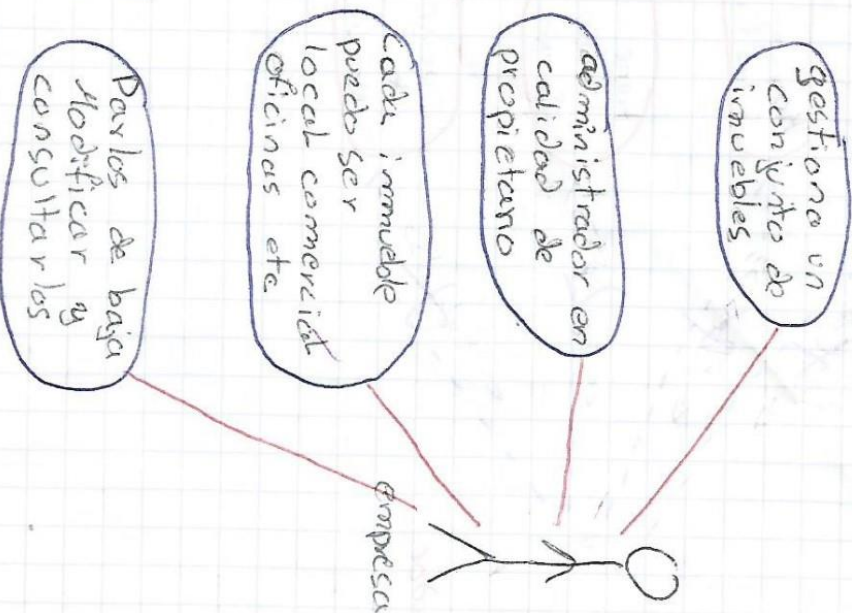 gestiona un
conjunto de
inmuebles
administrador en
calidad de
propietario
Cada inmueble
puede ser
local comercial
oficinas etc
Darlos de baja
Modificar y
consultarlos
empresa